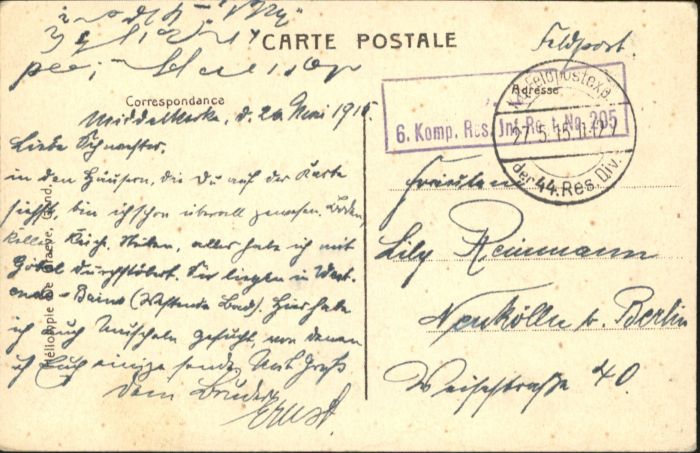 CARTE POSTALE
Feldpost.
Correspondance
Adresse
Middelkerke, d. 26. Mai 1915.
6. Komp. Res. Inf. Regt. No. 205
K.D. Feldpostexp.
27.5.15.11-12V
der 44. Res. Div.
Liebe Schwester,
in den Häusern, die Du auf der Karte
siehst, bin ich schon überall gewesen. Böden,
Keller, Küchen, alles habe ich mit
Göbel durchstöbert. Wir liegen in West-
ende-Bains (Westende Bad). Hier habe
ich auch Muscheln gesucht, von denen
ich Euch einige sende. Mit Gruß
Dein Bruder
Ernst.
Fräulein
Lily Reinmann
Neukölln b. Berlin
Weisestraße 40.
Héliotypie De Graeve, Gand.